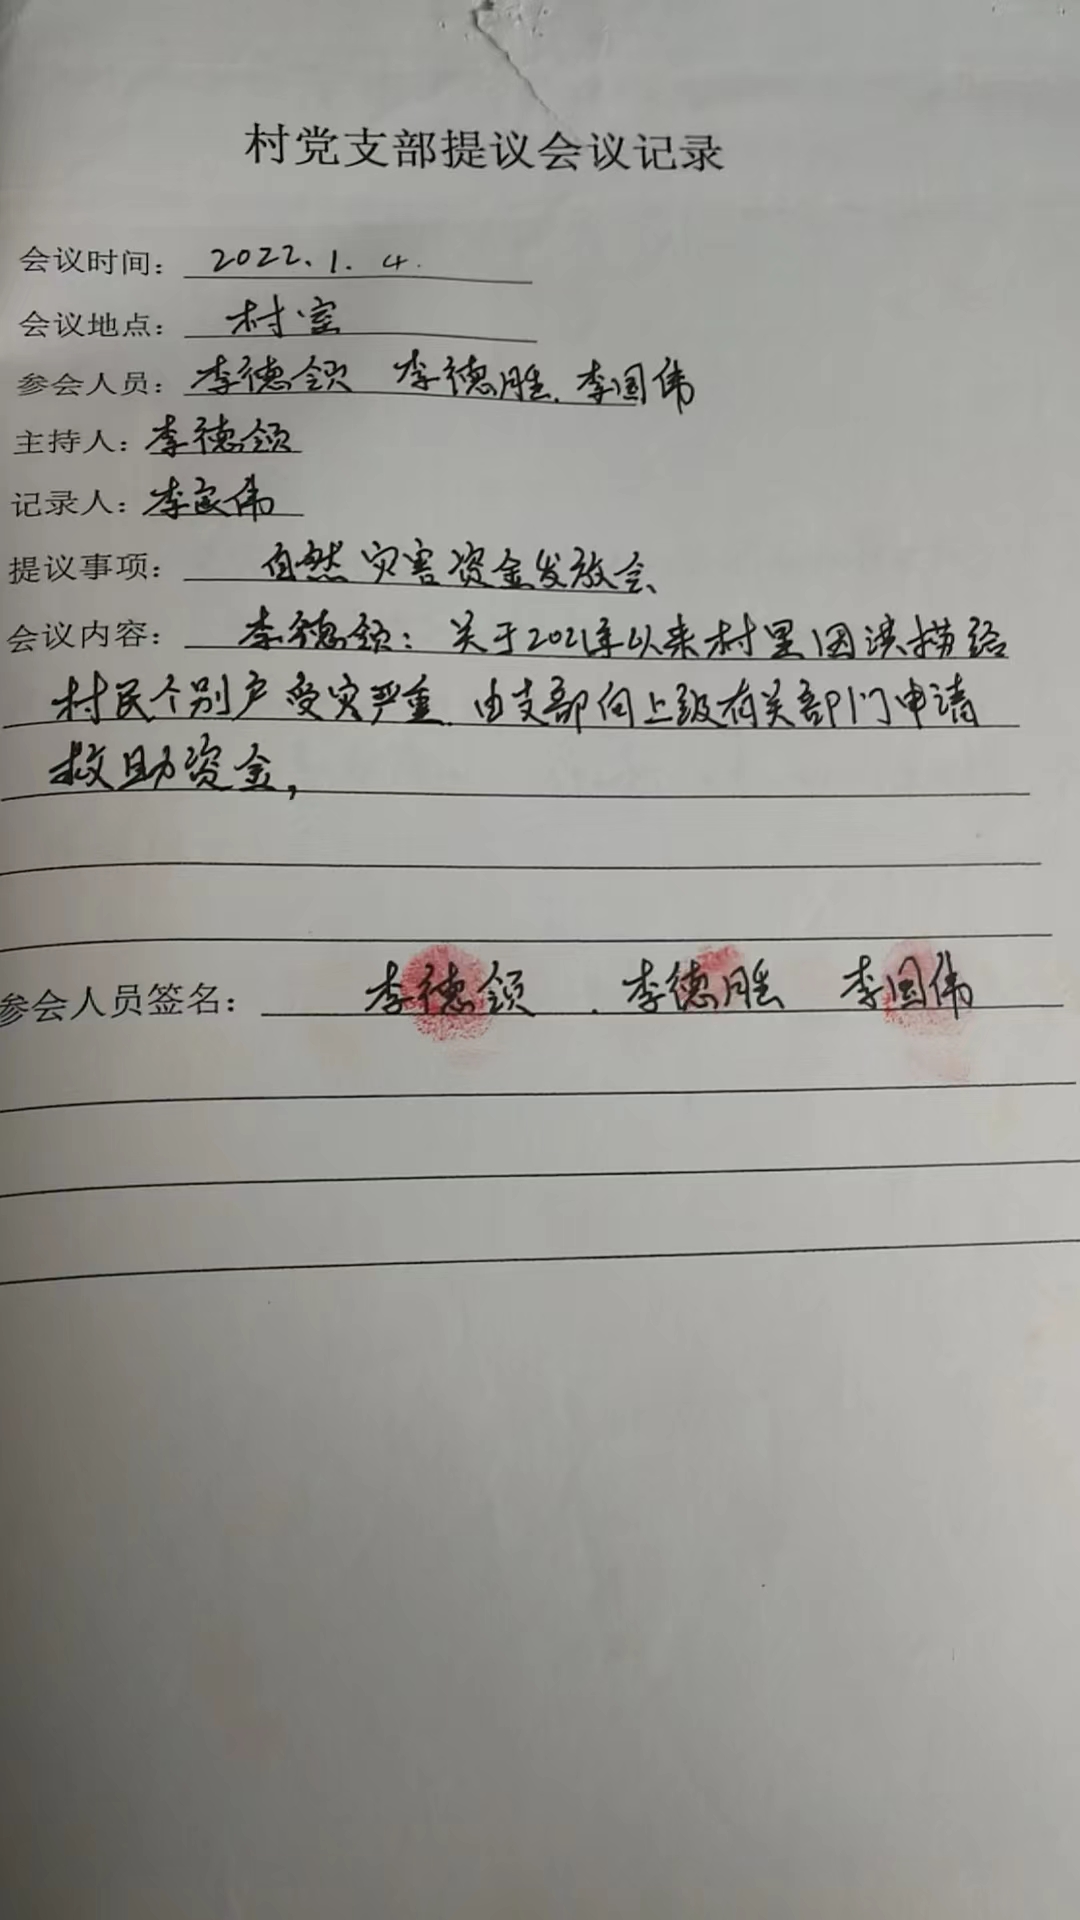 村党支部提议会议记录
会议时间: 2022.1.4.
会议地点: 村室
参会人员: 李德领 李德胜.李国伟
主持人: 李德领
记录人: 李国伟
提议事项: 自然灾害资金发放会
会议内容: 李德领: 关于2021年以来村里因洪涝给
村民个别户受灾严重.由支部向上级有关部门申请
救助资金,
参会人员签名: 李德领 . 李德胜 李国伟